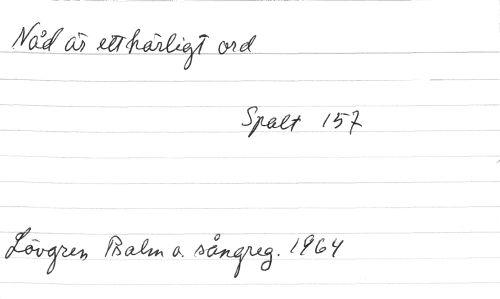 Nåd är ett härligt ord
Spalt 157
Lövgren Psalm o. sångreg. 1964